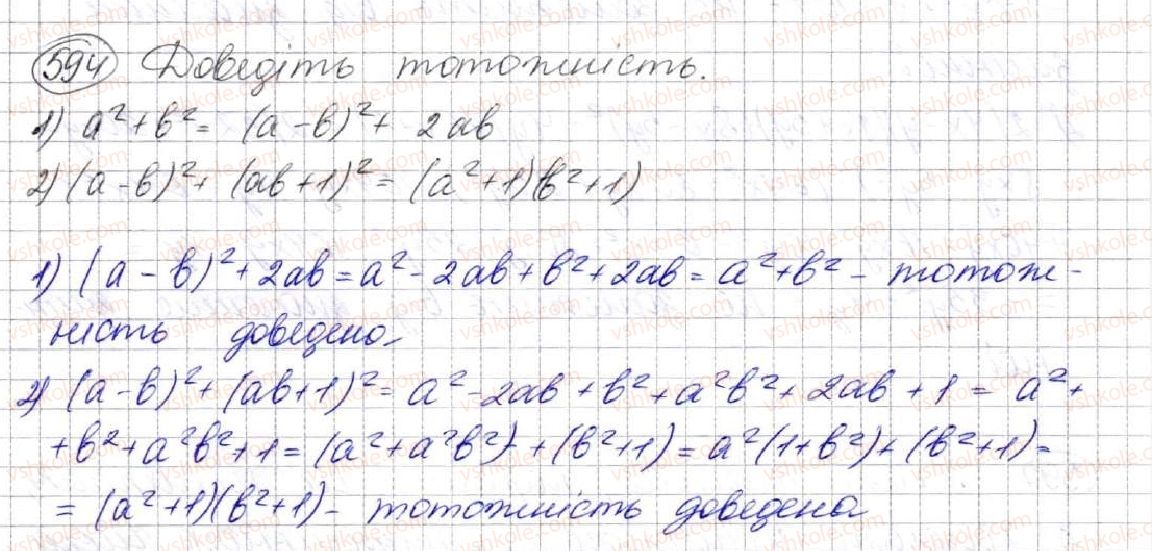 594 Доведіть тотожність.
1) a²+b²= (a-b)²+ 2ab
2) (a-b)²+ (ab+1)²= (a²+1)(b²+1)
1) (a-b)²+2ab=a²-2ab+b²+2ab=a²+b² - тотож-
ність доведено
2) (a-b)²+(ab+1)²=a²-2ab+b²+a²b²+2ab+1= a²+
+b²+a²b²+1=(a²+a²b²)+(b²+1)=a²(1+b²)+(b²+1)=
=(a²+1)(b²+1)- тотожність доведена